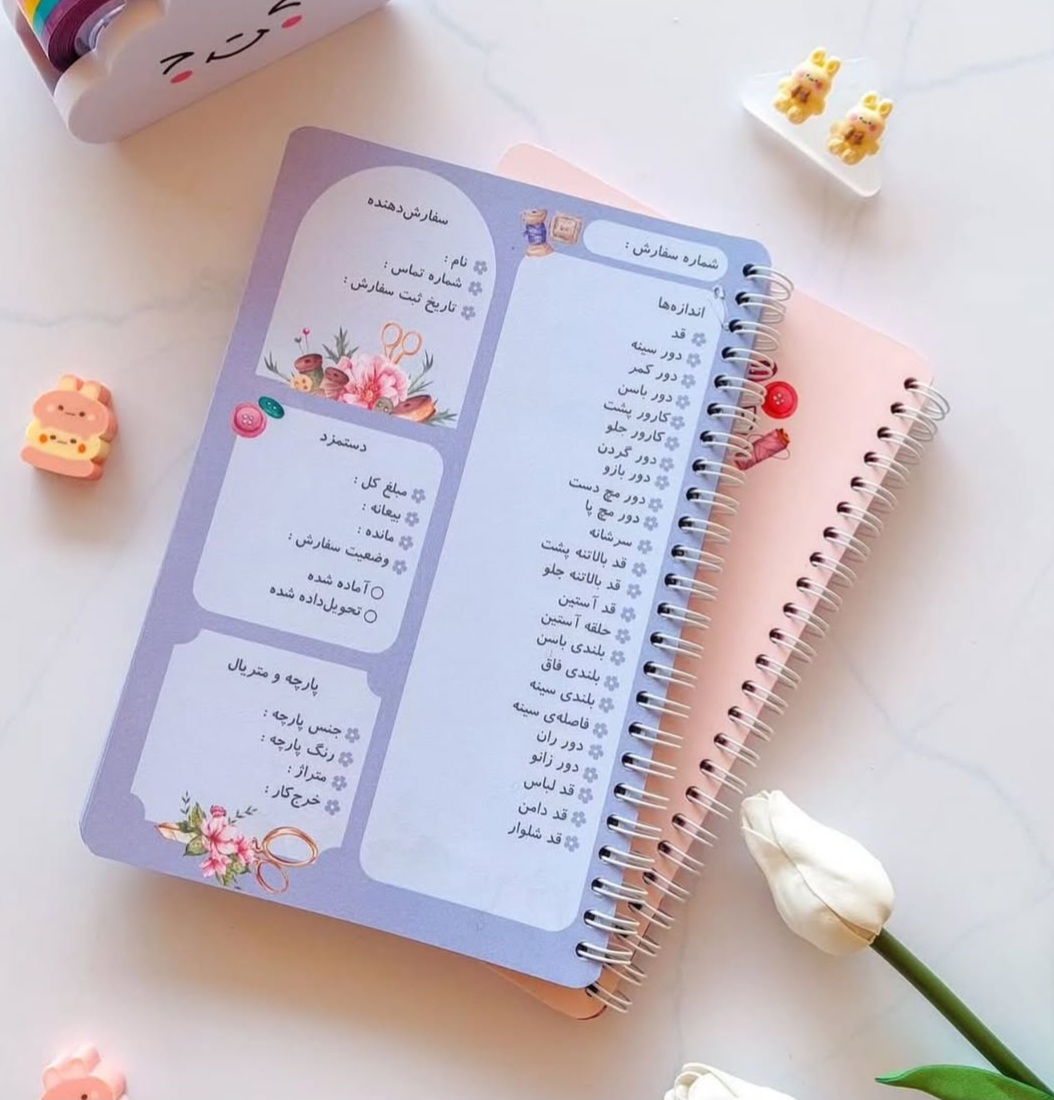 شماره سفارش :
اندازه‌ها
قد
دور سینه
دور کمر
دور باسن
کارور پشت
کارور جلو
دور گردن
دور بازو
دور مچ دست
دور مچ پا
سرشانه
قد بالاتنه پشت
قد بالاتنه جلو
قد آستین
حلقه آستین
بلندی باسن
بلندی فاق
بلندی سینه
فاصله‌ی سینه
دور ران
دور زانو
قد لباس
قد دامن
قد شلوار
سفارش‌دهنده
نام :
شماره تماس :
تاریخ ثبت سفارش :
دستمزد
مبلغ کل :
بیعانه :
مانده :
وضعیت سفارش :
آماده شده
تحویل‌داده شده
پارچه و متریال
جنس پارچه :
رنگ پارچه :
متراژ :
خرج‌کار :